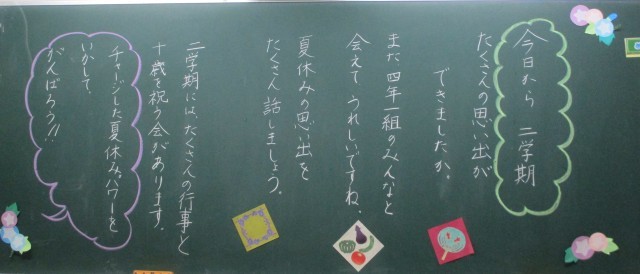 今日から 二学期
たくさんの思い出が
できましたか。
また、四年一組のみんなと
会えて、うれしいですね。
夏休みの思い出を
たくさん話しましょう。
二学期には、たくさんの行事と
十歳を祝う会があります。
チャージした夏休みパワーを
いかして、
がんばろう!!